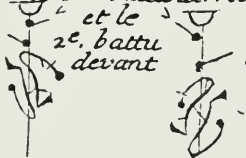 et le
2e. battu
devant